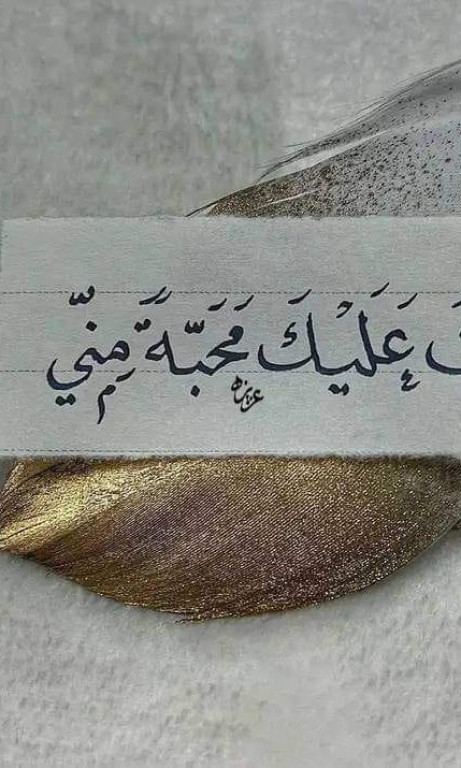 عَلَيْكَ مَحَبَّةً مِنِّي
عزيزه